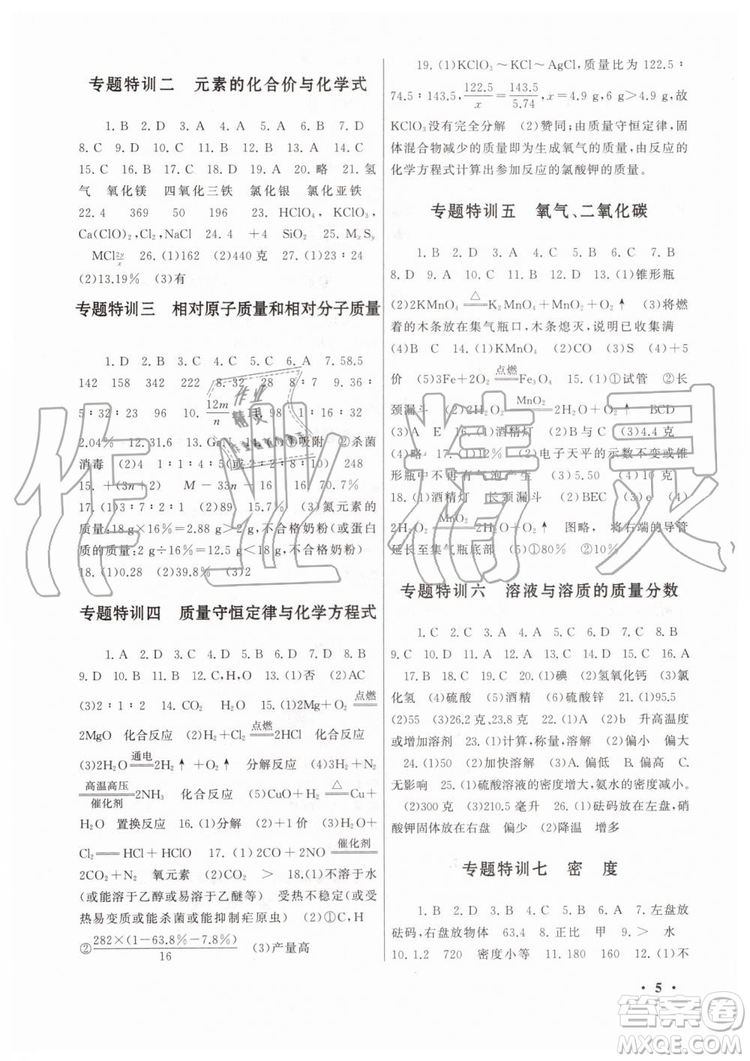 专题特训二 元素的化合价与化学式
1. B 2. D 3. A 4. A 5. C 6. B 7. D
8. C 9. C 10. B 11. B 12. A 13. C 14. C
15. C 16. D 17. C 18. A 20. 略 21. 氢
气 氧化镁 四氧化三铁 氯化银 氯化亚铁
22. 4 369 50 23. HClO₄, KClO₃,
Ca(ClO)₂, NaCl 24. +4 SiO₂ 25.
26. (1)162 (2)440克 27. (1)3:1
(2)13.19% (3)有
专题特训三 相对原子质量和相对分子质量
1. D 2. D 3. C 4. A 5. A 6. D 7. 58.5
142 158 342 222 8. 32 28 8:7 9. 36:
5:32 23 96 10. 12m/n 98 1:16:32
2.04% 12. 31.6 13. (1)吸附 (2)杀菌
消毒 (2)4 1:1:4 (2)5:12 16. 150 248
15. +(3n+2) M-33n-16n
17. (1) (3)氮元素的
质量: 18 g×16%=2.88 g>2 g, 不合格奶粉(或
质量: 2 g÷16%=12.5 g<18 g, 不合格奶粉)
18. (1)0.28 (2)39.8% (3)2
专题特训四 质量守恒定律与化学方程式
1. A 2. D 3. D 4. A 5. C 6. A 7. B 8. B
9. D 10. A 11. D 12. C,H,O 13. (1)否 (2)AC
(3)2:1:2 14. CO₂ 15. (1)2Mg+O₂ =点燃=
2MgO 化合反应 (2)H₂+Cl₂ =点燃= 2HCl 化合反应
(3)2H₂O =通电= 2H₂↑+O₂↑ 分解反应 (4)3H₂+N₂
=高温高压/催化剂= 2NH₃ 化合反应 (5)CuO+H₂ =△= Cu+
H₂O 置换反应 16. (1)+1 (2)Cl₂+H₂O=
HCl+HClO 17. (1)2CO+2NO =催化剂=
2CO₂+N₂ 氧元素 (2)> 18. (1)①不溶于水
(或能燃烧或能溶于乙醇或易溶于乙醚等) 受热不稳定(或受
热易变质或能杀菌或能抑制疟原虫) (2)①4
②282×(1-63.8%-7.8%)/16 (3)产量高
19. (1)KClO₃~KCl~AgCl, 质量比为122.5:
74.5:143.5, 122.5/x=143.5/5.74, x=4.9 g, 6 g>4.9 g, 故
KClO₃没有完全分解 (2)赞同: 由质量守恒定律, 固
体混合物减少的质量即为生成氧气的质量, 由反应的
化学方程式计算出参加反应的氯酸钾的质量。
专题特训五 氧气、二氧化碳
1. B 2. D 3. D 4. D 5. C 6. B 7. A
8. D 9. B 10. B 11. D 12. B 13. (1)锥形瓶
(2)2KMnO₄ =△= K₂MnO₄+MnO₂+O₂↑ (3)将燃
着的木条放在集气瓶口, 木条熄灭, 说明已收集满
(4)B 14. (1)C (2)B (3)CO₂ (4)+5
价 (5)3Fe+2O₂ =点燃= Fe₃O₄ 15. (1)①试管 ②长
颈漏斗 (2)2H₂O₂ =MnO₂= 2H₂O+O₂↑ BCD
(3)A E 16. (1)酒精灯 (2)B与C (3)4.4克
(4)略 17. 1:2 (2)电子天平的示数不变或锥
形瓶中不再有气泡产生 (3) 0.80%
18. (1)酒精灯 长颈漏斗 (2)BEC (3)d (4)
2H₂O₂ =MnO₂= 2H₂O+O₂↑ 图略, 将右端的导管
延长至集气瓶底部 (5)①80% ②
专题特训六 溶液与溶质的质量分数
1. C 2. C 3. A 4. D 5. D 6. D 7. B 8. C
17. B 18. C 19. D 20. (1)碘 (2)氢氧化钙 (3)氯
化氢 (4)硫酸 (5)酒精 (6)硫酸锌 21. (1)95.5
(2)55 (3)26.2克, 23.8克 22. (1)A (2)b 升高温度
或增加溶剂 23. (1)计算, 称量, 溶解
(2)加快溶解 (3)A偏小 B偏低 C偏高
无影响 24. (1)硫酸溶液的密度增大, 氨水的密度减小
(2)300克 (3)210.5毫升 26. (1)砝码在左盘, 硝
酸钾固体放在右盘 偏少 (2)降温 增多
专题特训七 密 度
1. C 2. B 3. C 4. A 5. B 6. A 7. 左盘放
砝码, 右盘放物体 63.4 8. 正比 甲 9. > 水
10. 1.2 11. 720 密度小等 12. (1)不同的
· 5 ·
作业精灵
作业精灵
答案圈
MXQE.COM